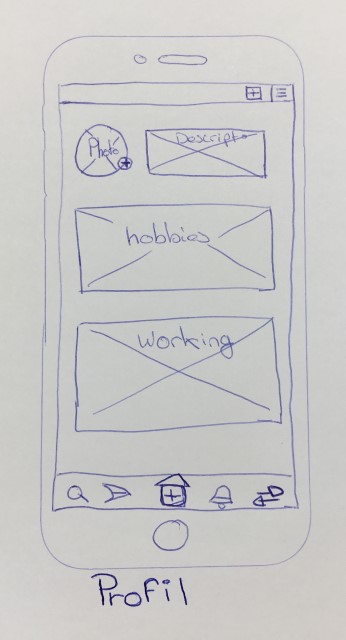 Photo
Descripto
hobbies
Working
Profil